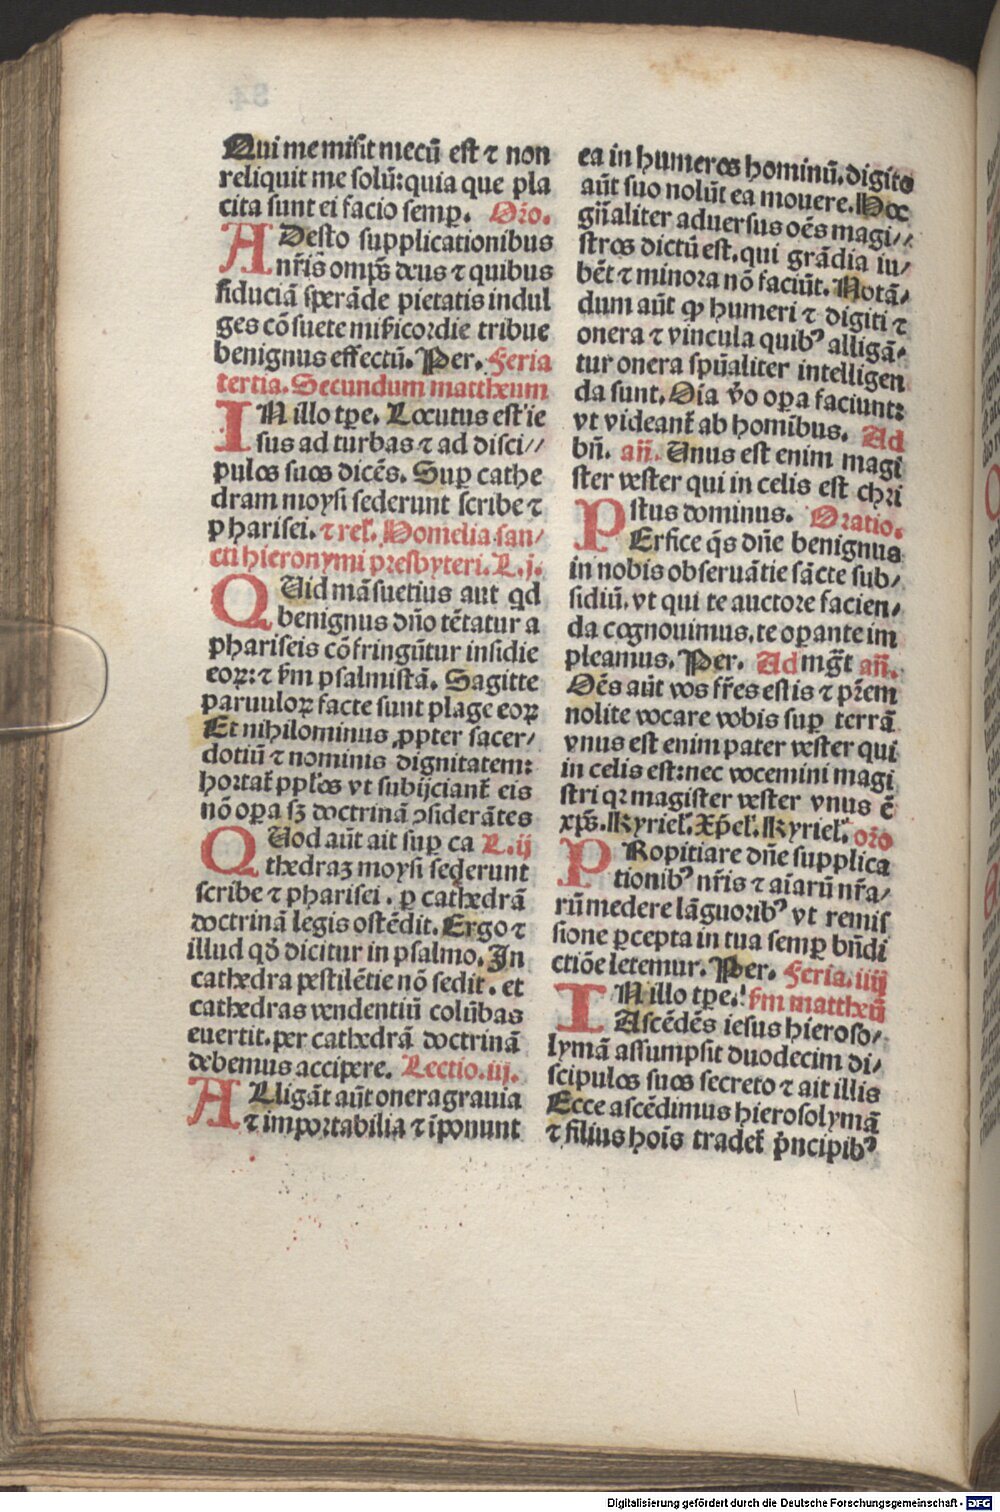 Qui me misit mecū est ⁊ non
reliquit me solū: quia que pla
cita sunt ei facio semꝑ. Oro̅.
ADesto supplicationibus
nr̄is omp̄s deus ⁊ quibus
fiduciā sperāde pietatis indul
ges cōsuete mīficordie tribue
benignus effectū. Per. Feria
tertia. Secundum mattheum
IN illo tp̄e. Locutus est ie
sus ad turbas ⁊ ad disci//
pulos suos dicēs. Suꝑ cathe
dram moysi sederunt scribe ⁊
pharisei. ⁊ rel̄. Homelia san/
cti hieronymi presbyteri. L. j.
QUid māsuetius aut qd
benignus dn̄o tētatur a
phariseis cōfringūtur insidie
eoꝝ: ⁊ km̄ psalmistā. Sagitte
paruuloꝝ facte sunt plage eoꝝ
Et nihilominus ꝓpter sacer/
dotiū ⁊ nominis dignitatem:
hortat̄ ppl̄os vt subijciant̄ eis
nō oꝑa sꝫ doctrinā ꝯsiderātes
QUod aūt ait suꝑ ca L. ij
thedraꝫ moysi sederunt
scribe ⁊ pharisei. ꝑ cathedrā
doctrinā legis ostēdit. Ergo ⁊
illud qd̄ dicitur in psalmo. In
cathedra pestilētie nō sedit. et
cathedras vendentiū colūbas
euertit. per cathedrā doctrinā
debemus accipere. Lectio. iij.
ALligāt aūt onera grauia
⁊ importabilia ⁊ īponunt
ea in humeros hominū. digito
aūt suo nolūt ea mouere. Hoc
gn̄aliter aduersus oēs magi//
stros dictū est. qui grādia iu/
bēt ⁊ minora nō faciūt. Notā/
dum aūt ꝙ humeri ⁊ digiti ⁊
onera ⁊ vincula quibꝰ alligā/
tur onera spūaliter intelligen
da sunt. Oīa v̄o oꝑa faciunt:
vt videant̄ ab homībus. Ad
bn̄. an̄. Unus est enim magi
ster vester qui in celis est chri
stus dominus. Oratio.
PErfice q̄s dn̄e benignus
in nobis obseruātie sācte sub/
sidiū. vt qui te auctore facien/
da cognouimus, te oꝑante im
pleamus. Per. Ad mgt̄ an̄.
Oēs aūt vos fr̄es estis ⁊ pr̄em
nolite vocare vobis suꝑ terrā
vnus est enim pater vester qui
in celis est: nec vocemini magi
stri qꝛ magister vester vnus ē
xp̄s. Kyriel̄. Xp̄el̄. Kyriel̄. oro̅
PRopitiare dn̄e supplica
tionibꝰ nr̄is ⁊ aīarū nr̄a/
rū medere lāguoribꝰ vt remis
sione ꝑcepta in tua semꝑ bn̄di
ctiōe letemur. Per. Feria. iiij
IN illo tp̄e. km̄ mattheū
Ascēdēs iesus hieroso/
lymā assumpsit duodecim di/
scipulos suos secreto ⁊ ait illis
Ecce ascēdimus hierosolymā
⁊ filius hoīs tradet̄ pn̄cipibꝰ
Digitalisierung gefördert durch die Deutsche Forschungsgemeinschaft - DFG